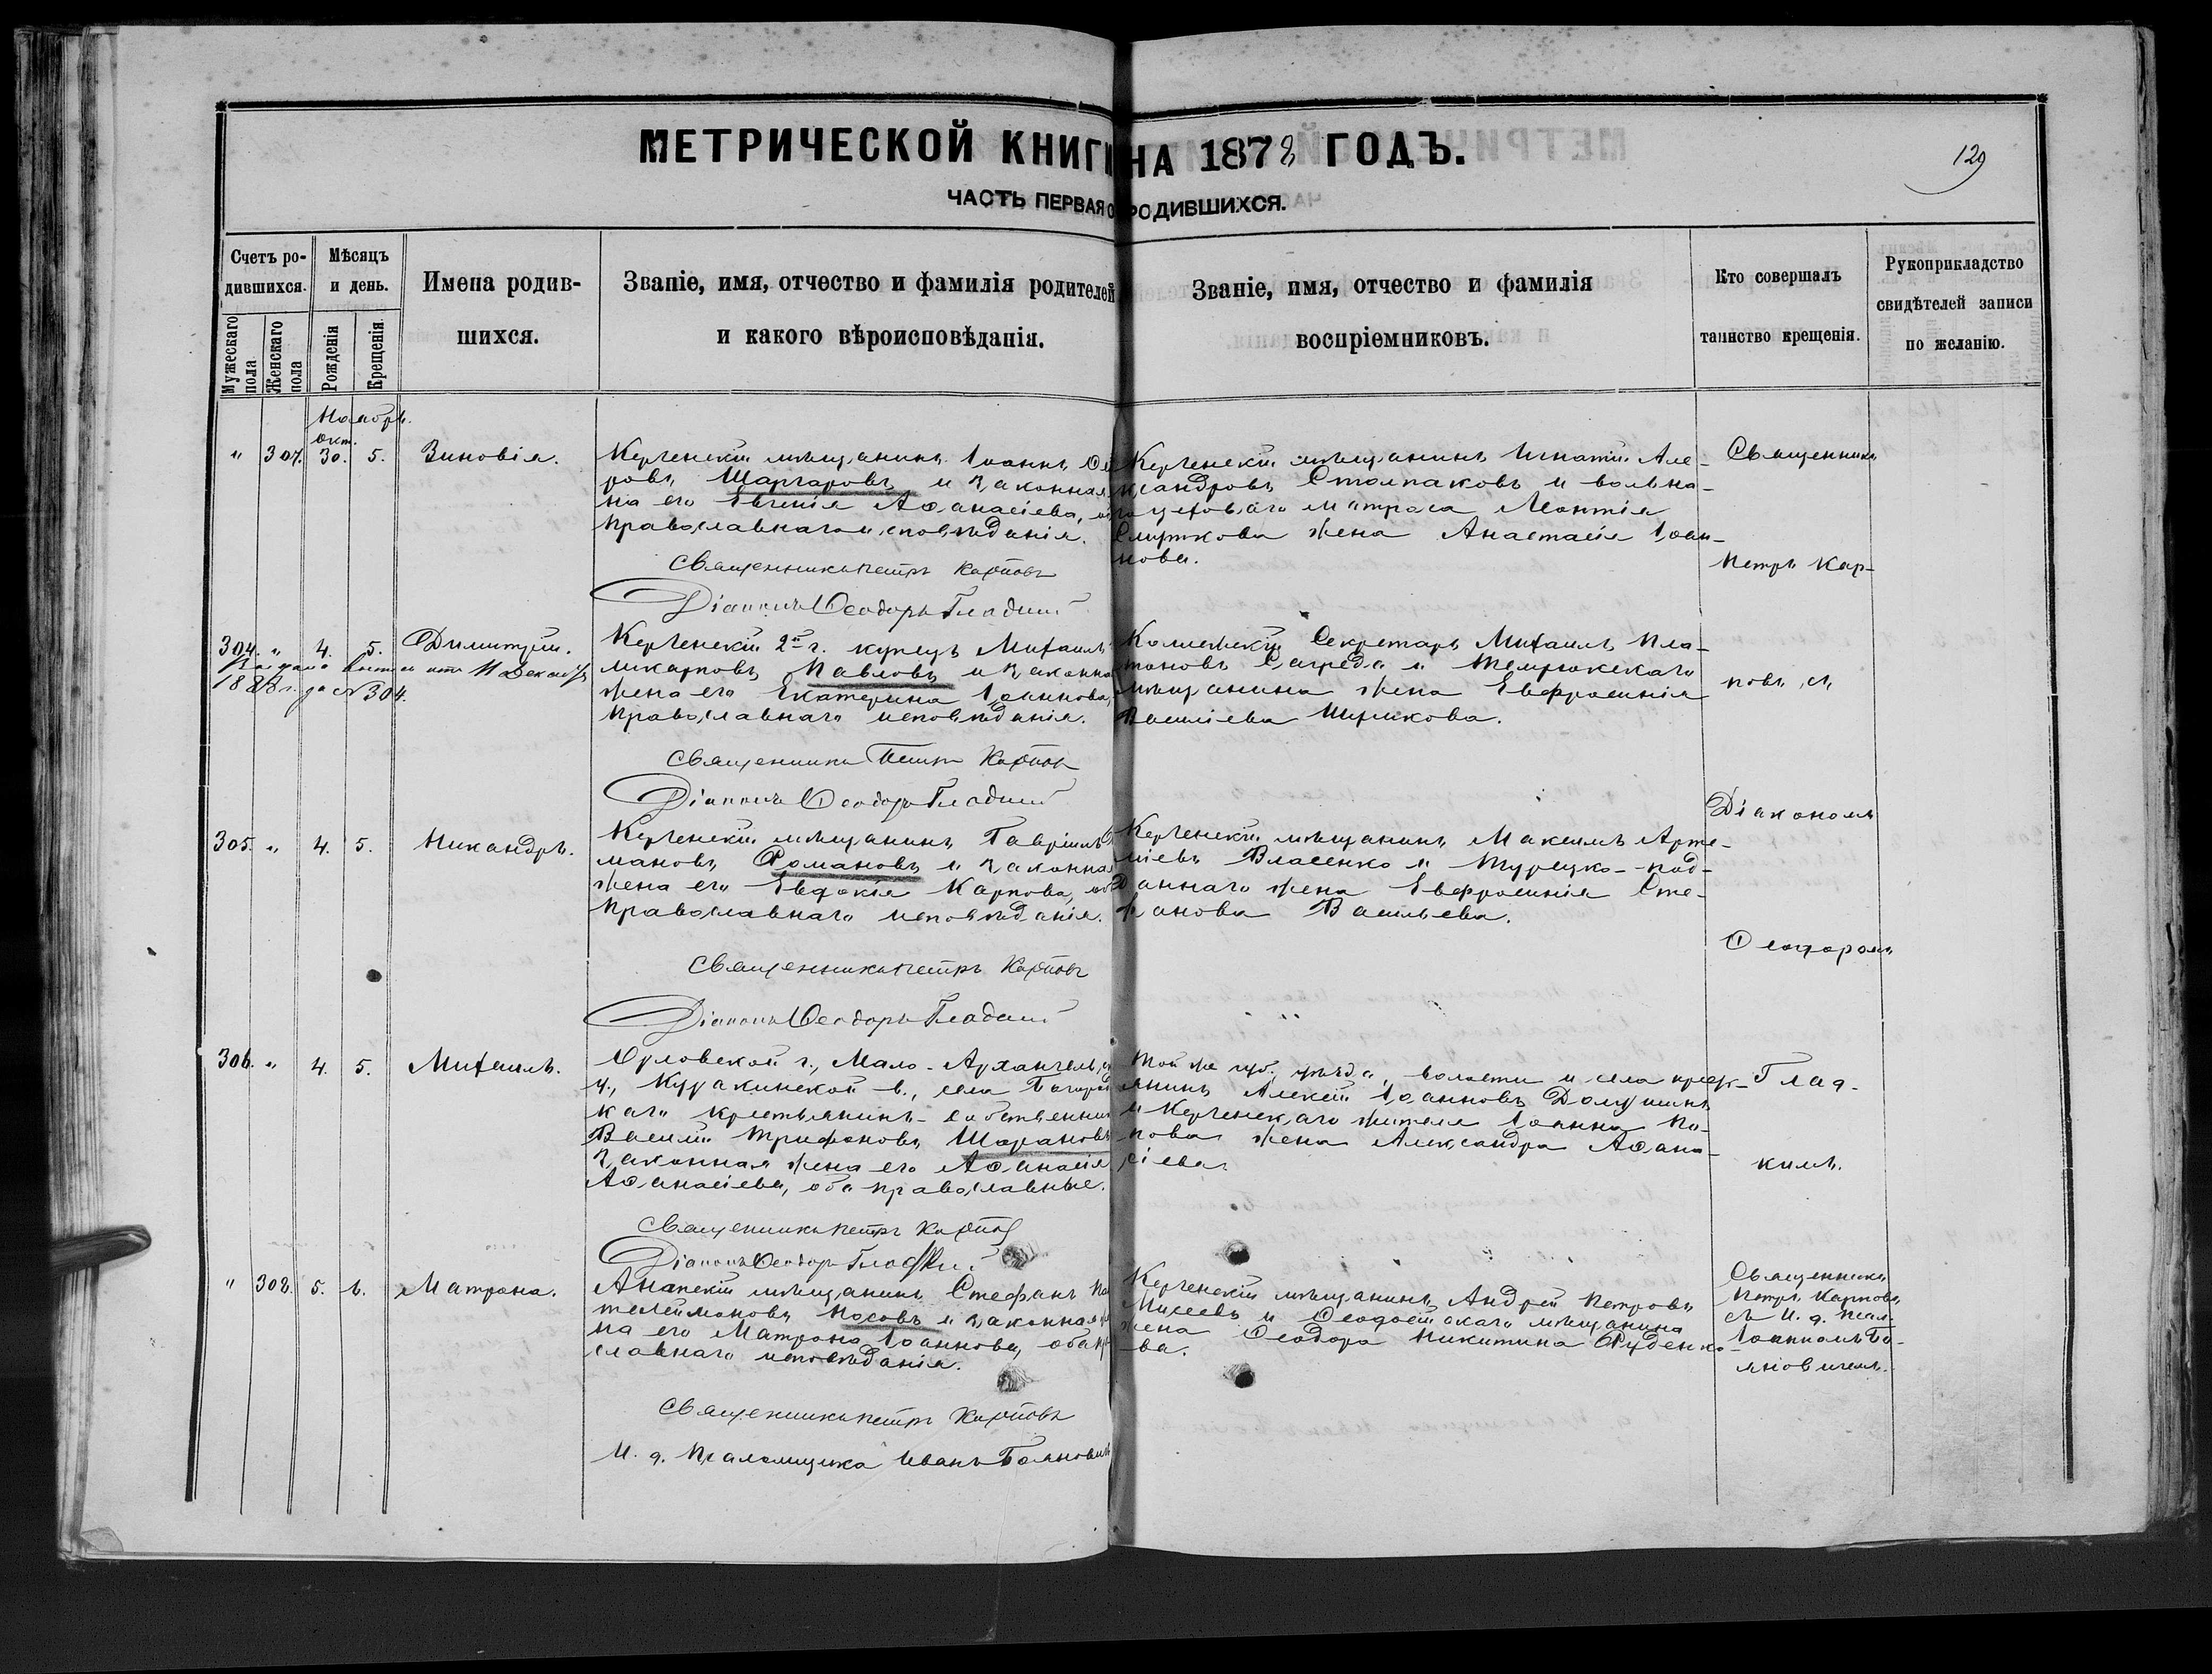 МЕТРИЧЕСКОЙ КНИГИ НА 1878 ГОДЪ.
129
ЧАСТЬ ПЕРВАЯ О РОДИВШИХСЯ.
Счетъ ро-
дившихся.
Мужескаго пола
Женскаго пола
Мѣсяцъ
и день.
Рожденія
Крещенія
Имена родив-
шихся.
Званіе, имя, отчество и фамилія родителей
и какого вѣроисповѣданія.
Званіе, имя, отчество и фамилія
воспріемниковъ.
Кто совершалъ
таинство крещенія.
Рукоприкладство
свидѣтелей записи
по желанію.
Ноябрь.
Окт.
" 307. 30. 5. Зиновія.
Керченскій мѣщанинъ Іоаннъ
ровъ Шапаровъ и законная
на его Евгенія Аѳанасіева,
православнаго исповѣданія.
Священникъ Петръ Карповъ
Діаконъ Ѳеодоръ Гладкій
Керченскій мѣщанинъ Игнатій Але-
ксандровъ Столпаковъ и вольно-
матроса Леонтія
жена Анастасія Іоан-
нова.
304. " 4. 5. Димитрій.
11 Декабря
за № 304.
Керченскій 2й г. купецъ Михаилъ
ликарповъ Павловъ и законна
жена его Екатерина Іоаннова,
православнаго исповѣданія.
Священникъ Петръ Карповъ
Діаконъ Ѳеодоръ Гладкій
Коллежскій Секретарь Михаилъ Пла-
тоновъ и Темрюкскаго
мѣщанина жена Евфросинія
Василіева Ширикова.
305. " 4. 5. Никандръ.
Керченскій мѣщанинъ Гавріилъ
мановъ Романовъ и законная
жена его Евдокія Карпова,
православнаго исповѣданія.
Священникъ Петръ Карповъ
Діаконъ Ѳеодоръ Гладкій
Керченскій мѣщанинъ Максимъ Арте-
міевъ Власенко и Турецко-под-
даннаго жена Евфросинія Сте-
фанова Васильева.
306. " 4. 5. Михаилъ.
Орловской г., Мало-Архангельск
у., Куракинской в., села Богород
каго крестьянинъ-собственник
Василій Трифоновъ Шарановъ
законная жена его Аѳанасія
Аѳанасіева, оба православные.
Священникъ Петръ Карповъ
Діаконъ Ѳеодоръ Гладкій
Той же губ. уѣзда, волости и села крест-
янинъ Алексій Іоанновъ Долушинъ
и Керченскаго жителя Іоанна По-
пова жена Александра Аѳана-
сіева.
" 308. 5. 6. Матрона.
Анапскій мѣщанинъ Стефанъ Пан
телеймоновъ Носовъ и законная
на его Матрона Іоаннова, оба
славнаго исповѣданія.
Священникъ Петръ Карповъ
И. д. Псаломщика Иванъ Бояновичъ
Керченскій мѣщанинъ Андрей Петровъ
Михеевъ и Ѳеодосійскаго мѣщанина
жена Ѳеодора Никитина Руденко-
ва.
Священникъ
Петръ Кар-
повъ съ
Діакономъ
Ѳеодоромъ
Глад-
кимъ.
Священникъ
Петръ Карповъ
съ И. д. псал.
Іоанномъ Бо-
яновичемъ.